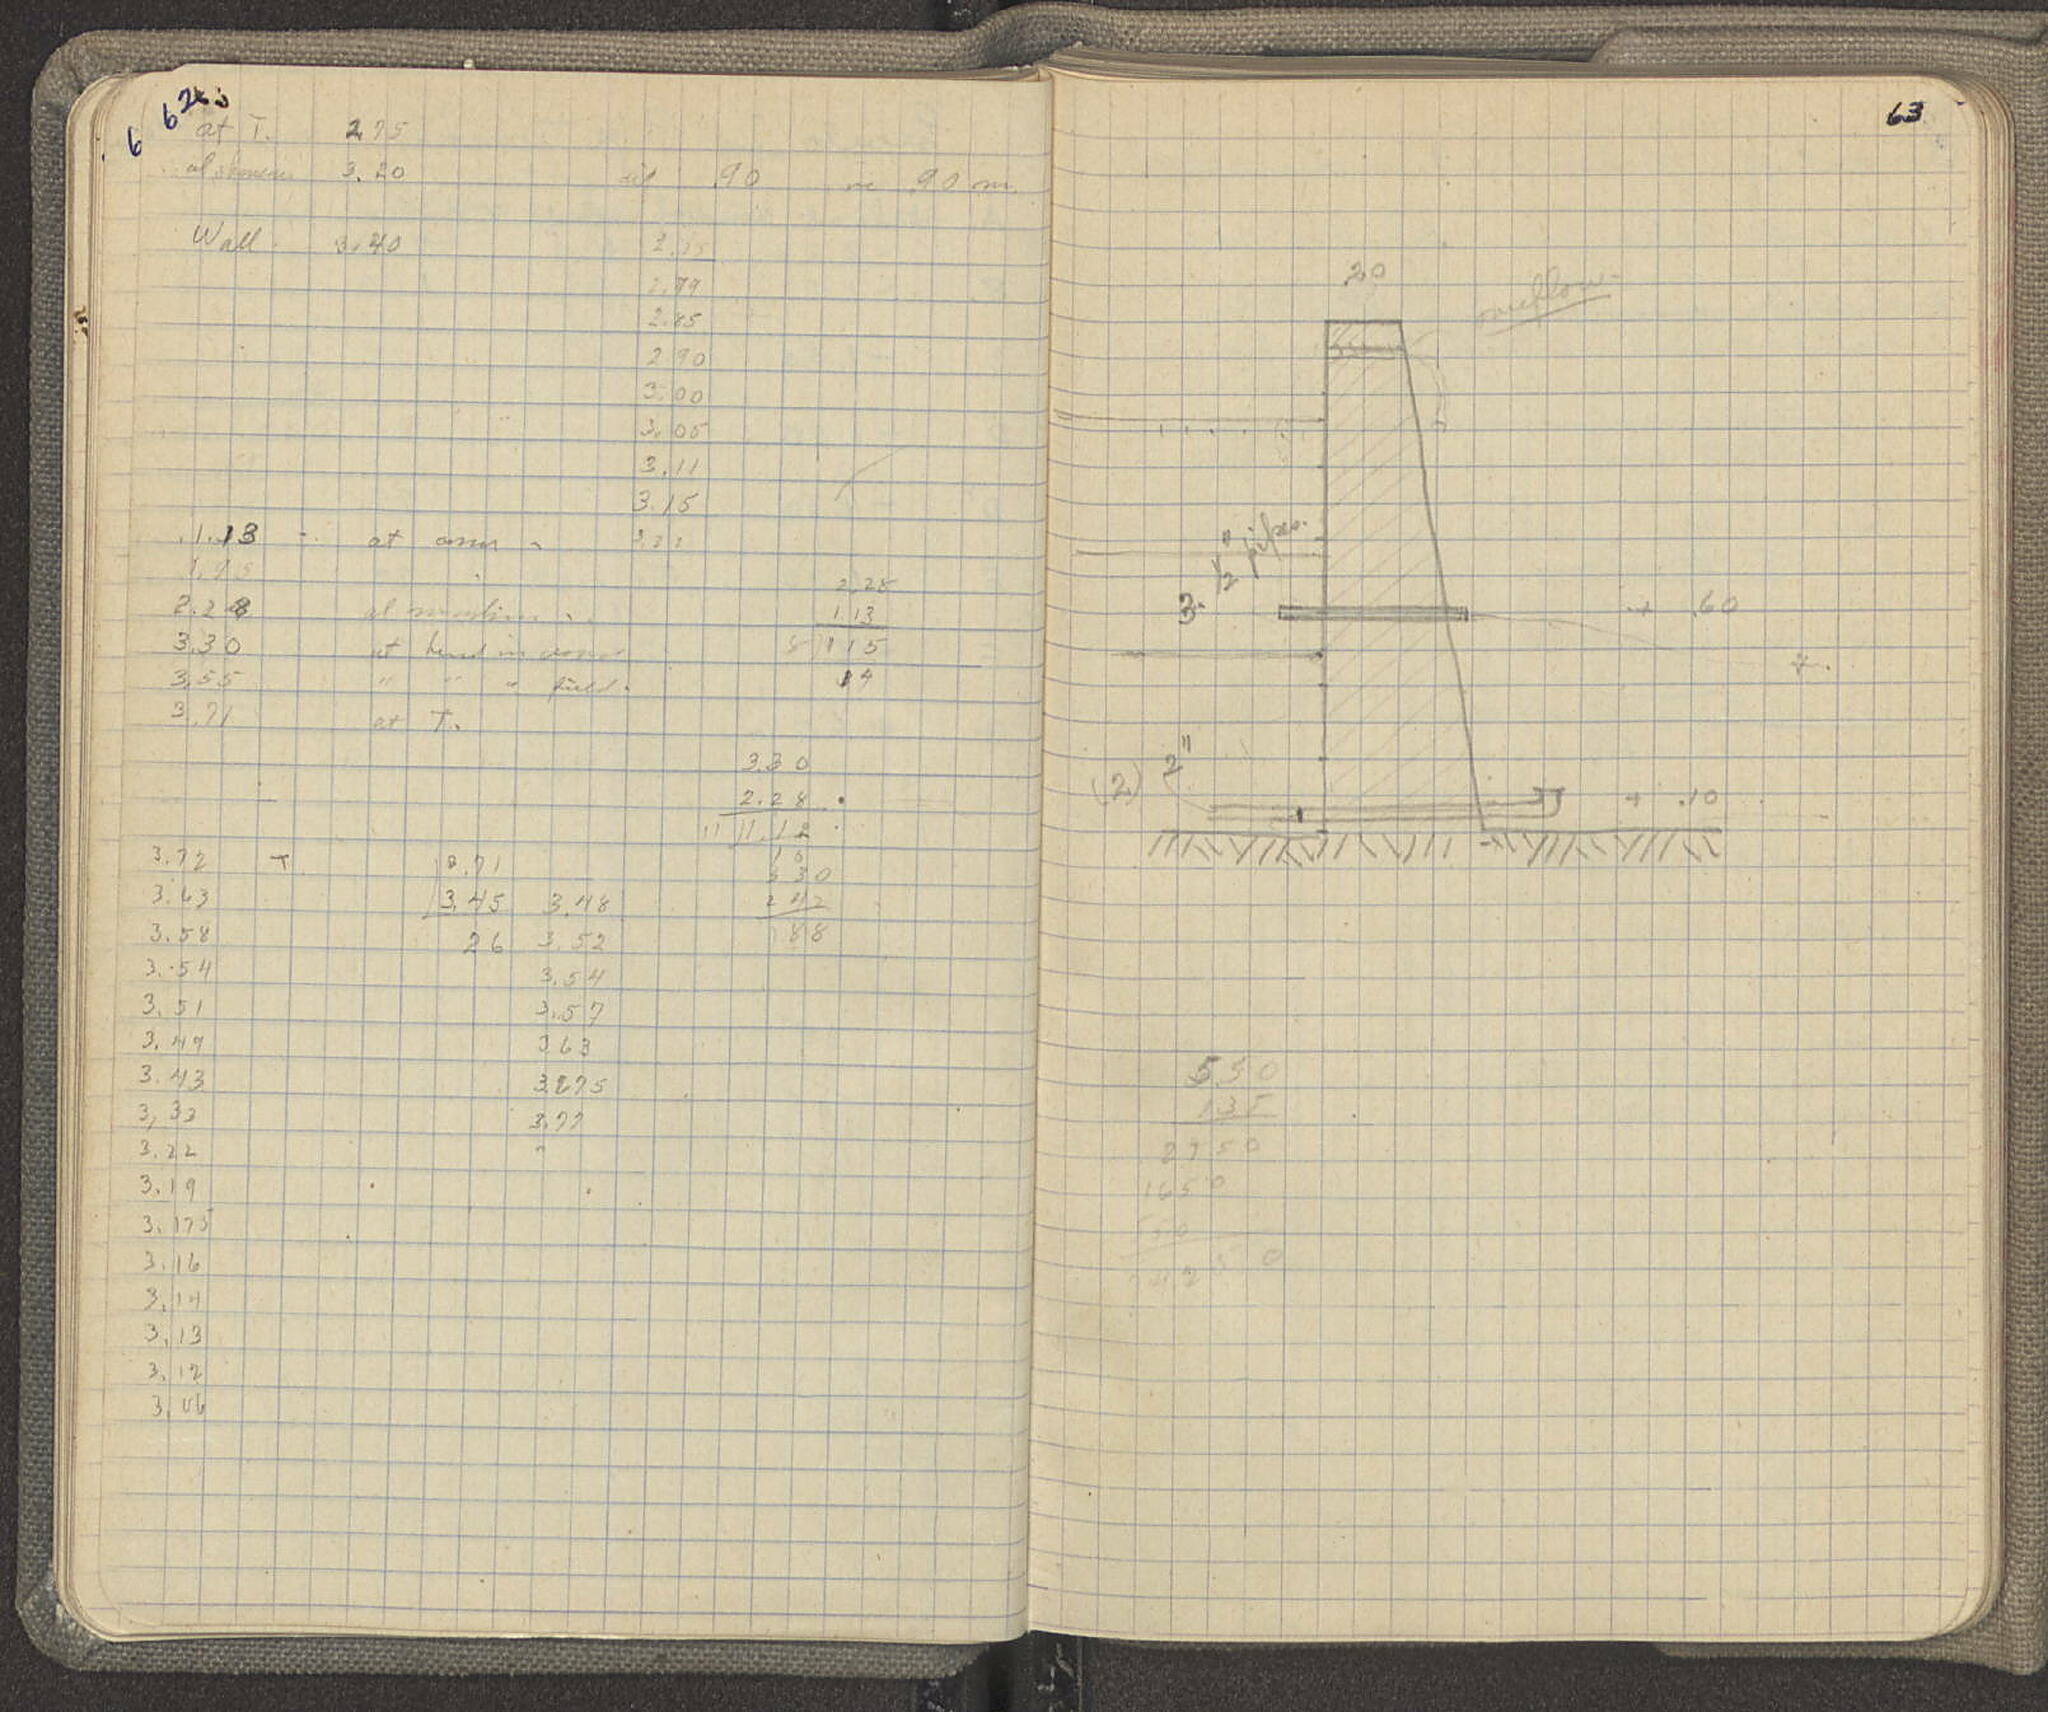 6
62
at T. 2.75
3.20 .90 .90 m.
Wall 3.40
2.79
2.85
2.90
3.00
3.05
3.11
3.15
1.13 - at
2.28
1.13
8 1 15
14
2.28
3.30 at bend in
3.55 " " " field.
3.71 at T.
3.30
2.28
11 1.12
3.72 T
3.71
3.45
26
3.63
3.58
3.54
3.51
3.49
3.43
3.33
3.22
3.19
3.175
3.16
3.14
3.13
3.12
3.06
3.48
3.52
3.54
3.57
3.63
3.675
3.77
330
242
88
63
20
overflow
3. 1/2" pipes.
+ .60
(2) 2"
+ .10
5.50
135
2750
1650
550
74250